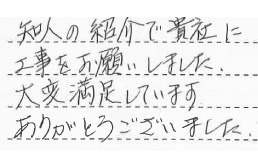 知人の紹介で貴社に
工事をお願いしました.
大変満足しています
ありがとうございました.